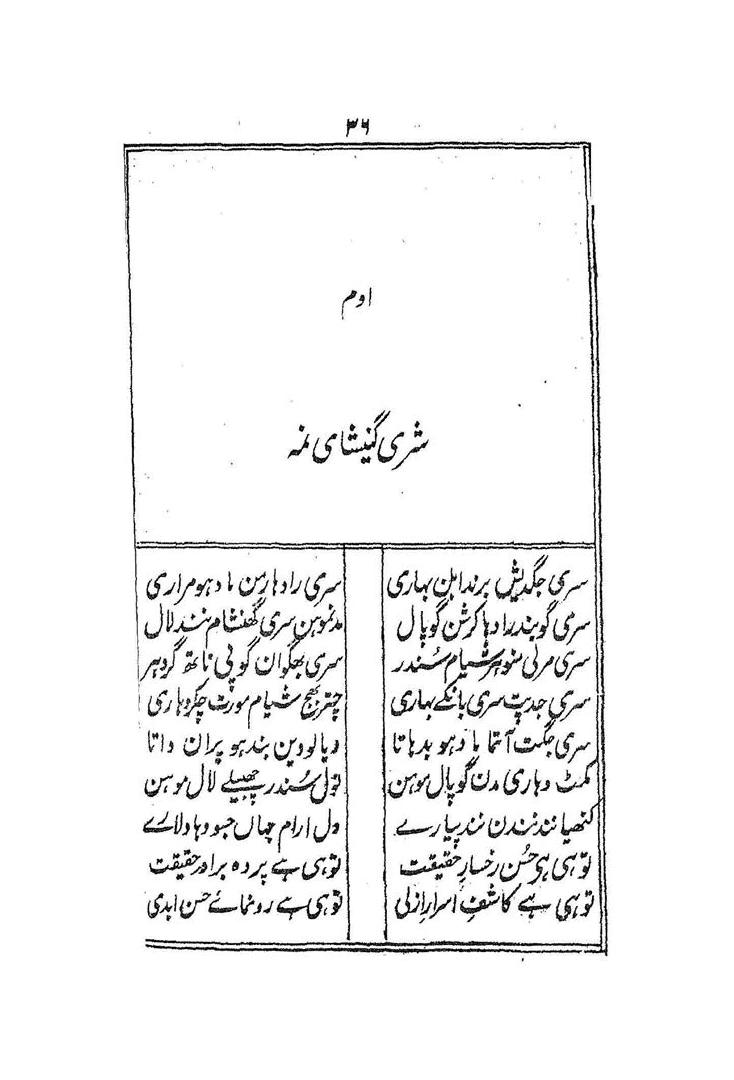 ۳۶
اوم
شری گنیشای نمہ
سری جگدیش برندابن بہاری سری رادہارمن مادہو مراری
سری گوبند رادہا کرشن گوپال مدنموہن سری گھنشام نند لال
سری مرلی منوہر شیام سُندر سری بھگوان گوپی ناتھ گردہر
سری جدپت سری بانکے بہاری چتر بھج شیام مورت چکردہاری
سری جگت آتما مادہو بدہاتا دیالو دین بندہو پران داتا
مکٹ دہاری مدن گوپال موہن نول سُندر چھبیلے لال موہن
کنھیا نند نندن نند پیارے دل ارام جہاں جسودہا دلارے
توہی ہر حُسن رخسارِ حقیقت توہی ہے پردہ برادر حقیقت
توہی ہے کاشفِ اسرارِ ازلی توہی ہے رونمائے حسن ابدی